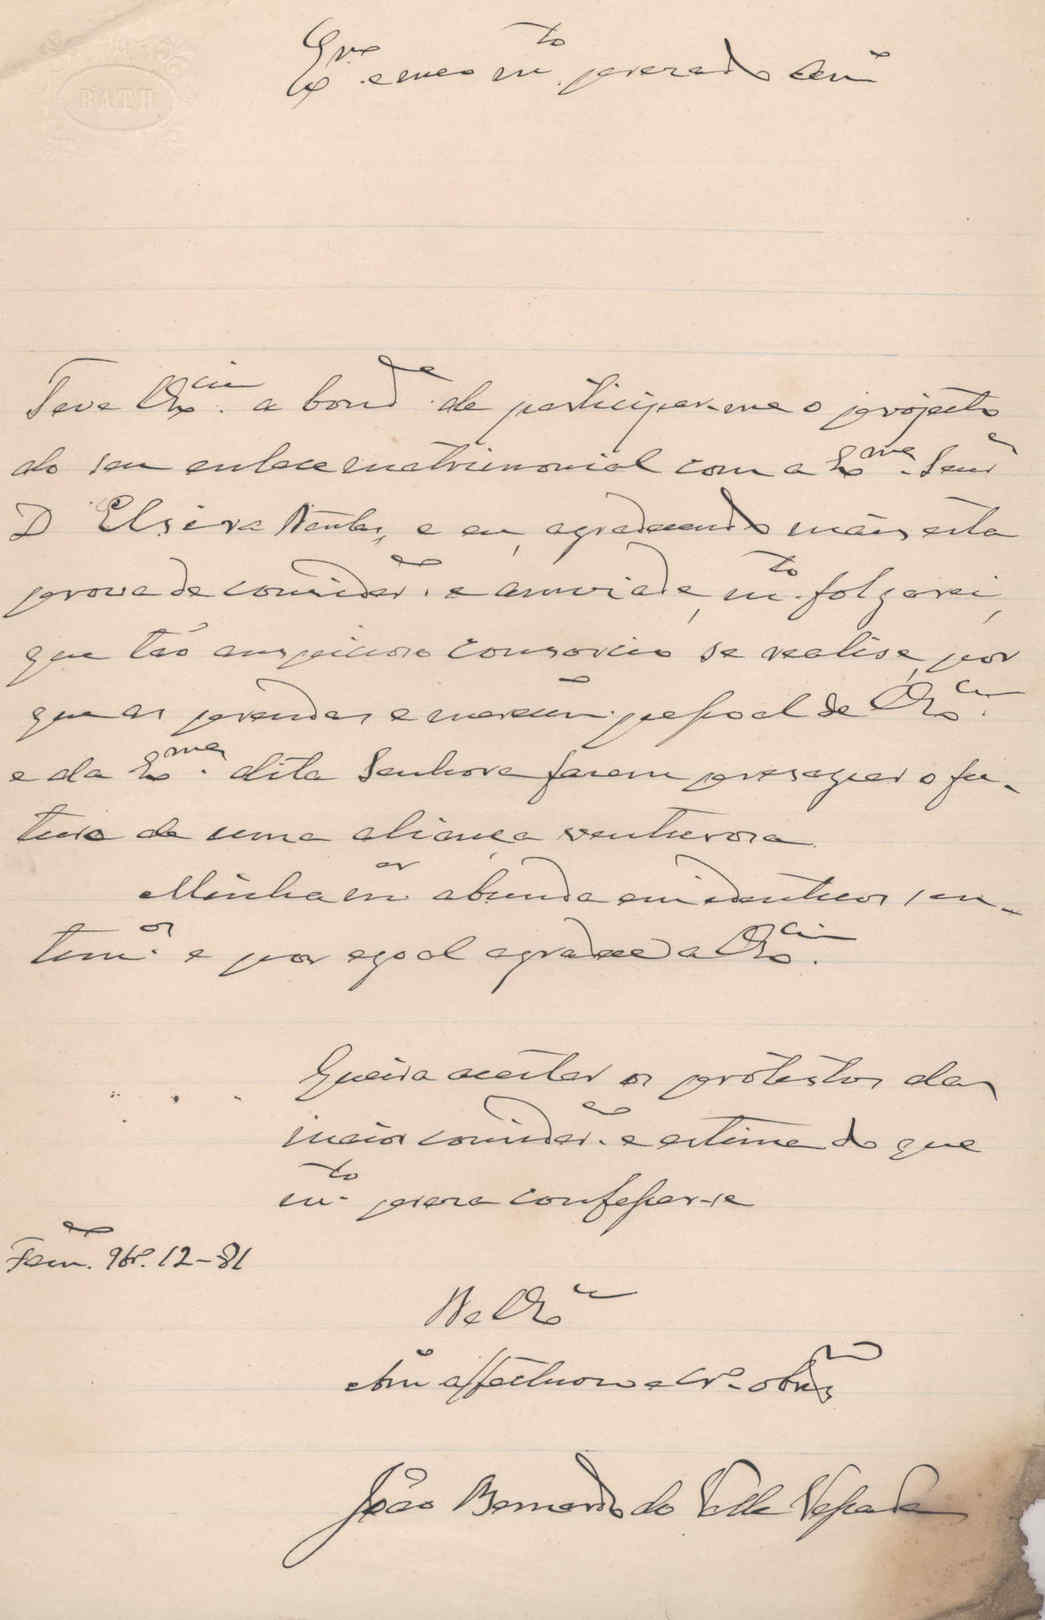 BATH
Ex.mo e meu m.to prezado Am.o
Teve V Ex.cia a bond.e de participar-me o projecto
do seu enlace matrimonial com a Ex.ma Senr.a
D Elzira Dantas, e eu, agradecendo mais esta
prova de consider.ão e amizade, m.to folgarei,
que tão auspicioso consorcio se realise, por
que as prendas e merecim.to pessoal de V Ex.cia
e da Ex.ma dita Senhora fazem presagiar o fu-
turo de uma aliança venturosa
Minha m.er abunda em identicos sen-
tim.os e por egoal agradece a V Ex.cia.
Queira aceitar os protestos da
maior consider.ão e estima do que
m.to preza confessar-se
Fam.ão 9br.o 12-81
De V Ex.cia
Am.o affectuoso e Cr.o obr.do
João Bernardo do Valle Vessada